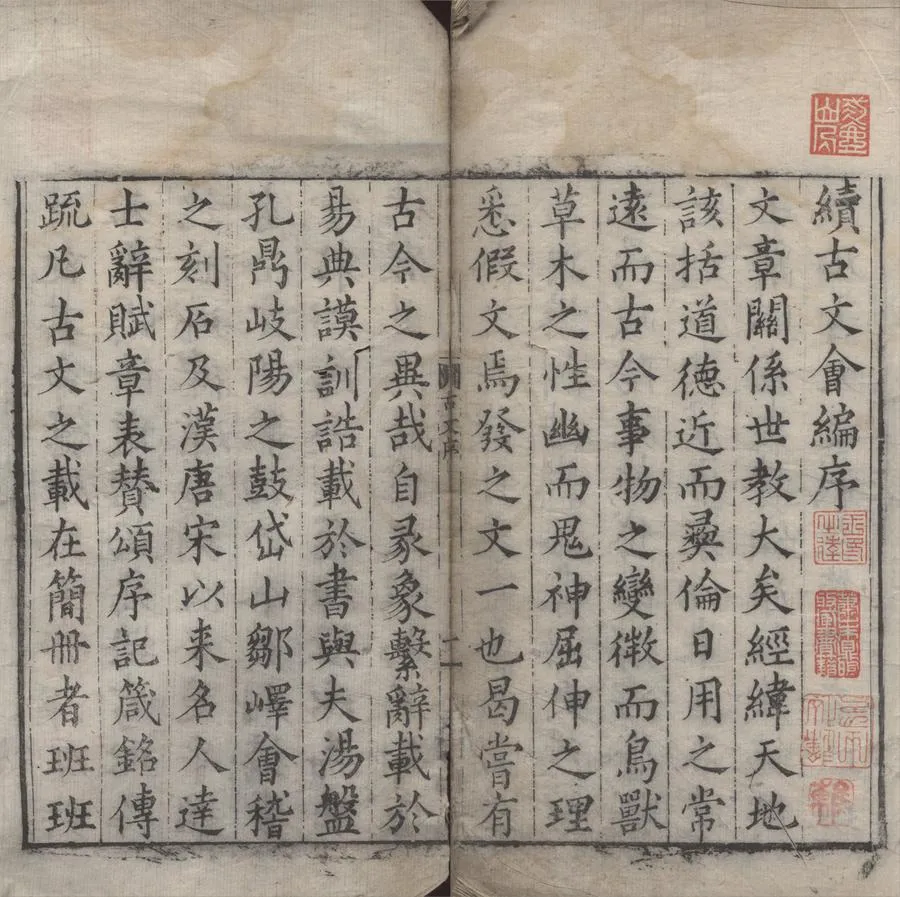 續古文會編序
文章關係世教大矣經緯天地
該括道德近而彝倫日用之常
遠而古今事物之變微而鳥獸
草木之性幽而鬼神屈伸之理
悉假文焉發之文一也曷嘗有
古文序
一
古今之異哉自彖象繫辭載於
易典謨訓誥載於書與夫湯盤
孔鼎岐陽之鼓岱山鄒嶧會稽
之刻石及漢唐宋以来名人達
士辭賦章表賛頌序記箴銘傳
疏凡古文之載在簡冊者班班